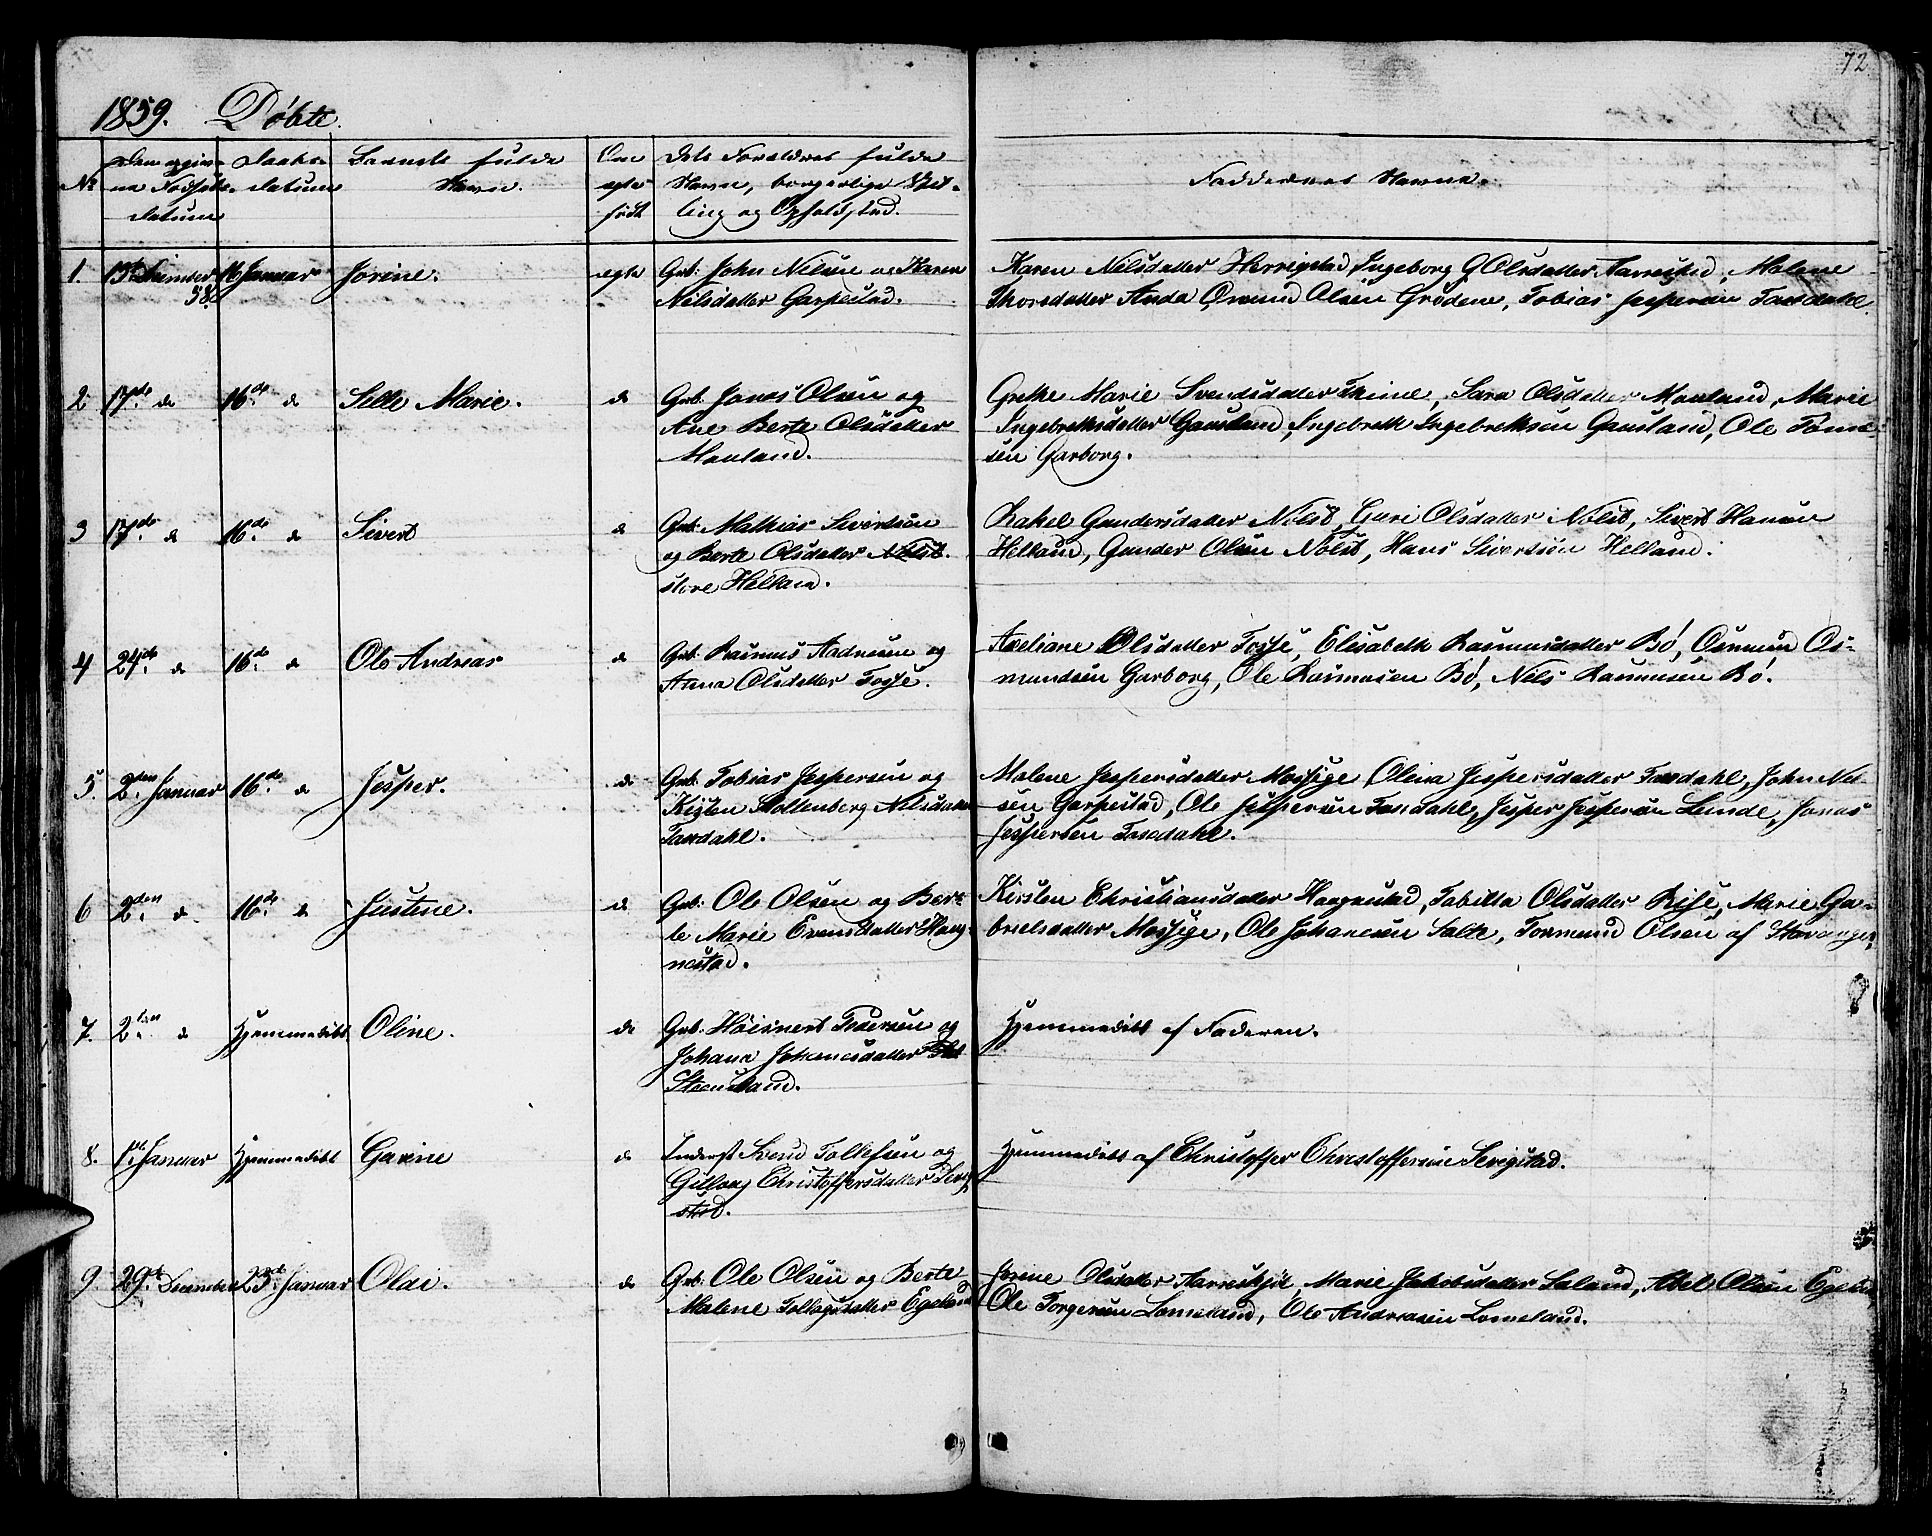 72
1859. Døbte.
No
Den opgiv-
ne Fødsels
datum
Daabs-
datum
Barnets fulde
Navn.
Om
egte
født
Dets Forældres fulde
Navn, borgerlige Stil-
ling og Opholdsted.
Faddernes Navne.
1. 15de December 58. 16 Januar Jorine. egte Grb: John Nilsen og Karen
Nilsdatter Garpestad.
Karen Nilsdatter Herrigstad, Ingeborg G Olsdatter Aarrestad, Malene
Thorsdatter Anda, Omund Olsen Grøden, Tobias Jespersen Taxdahl.
2 17de de 16de de Sille Marie. de Grb. Jonas Olsen og
Ane Berte Olsdatter
Mauland.
Grethe Marie Svendsdatter Thime, Sara Olsdatter Mauland, Marie
Ingebretsdatter Gausland, Ingebreth Ingebrethsen Gausland, Ole Tøne-
sen Garborg.
3 17de de 16de de Sivert de Grb. Mathias Sivertsen
og Berte Olsdatter
store Helland.
Rakel Gundersdatter Nølst, Guri Olsdatter Nølst, Sivert Hansen
Helland, Gunder Olsen Nølst, Hans Sivertsøn Helland.
4 24de de 16de de Ole Andreas de Grb. Rasmus Aadnesen og
Anna Olsdatter Fosse.
Axeliane Olsdatter Fosse, Elisabeth Rasmusdatter Bø, Osmund Os-
mundsen Garborg, Ole Rasmusen Bø, Nils Rasmusen Bø.
5. 2den Januar 16de de Jesper. de Grb. Tobias Jespersen og
Kisten Stoltenberg Nilsdatter
Taxdahl.
Malene Jespersdatter Mossige, Olina Jespersdatter Taxdahl, John Nil-
sen Garpestad, Ole Jespersen Taxdahl, Jesper Jespersen Lunde, Jonas
Jespersen Taxdahl.
6 2den de 16de de Justine. de Grb. Ole Olsen og Ber-
te Marie Evensdatter Haug-
nestad.
Kirsten Christiansdatter Haagnestad, Tabitta Olsdatter Risse, Marie Ga-
brielsdatter Mossige, Ole Johanesen Salte, Tormund Olsen af Stavanger,
7. 2den de Hjemmedøbt Oline. de Grb. Høisnert Pedersen og
Johana Johanesdatter
Steensland.
Hjemmedøbt af Faderen.
8. 1ste Januar Hjemmedøbt Garine de Inderst Svend Folkesen og
Gitlaug Christoffersdatter Serig-
stad.
Hjemmedøbt af Christoffer Christoffersen Serigstad.
9. 29de December 23de Januar Olai. de Grb. Ole Olsen og Berte
Malene Tollagsdatter Egeland
Jorine Olsdatter Aarreskjøl, Marie Jakobsdatter Saland, Abel Olsen Egeland
Ole Torgersen Lomeland, Ole Andreasen Lomeland.